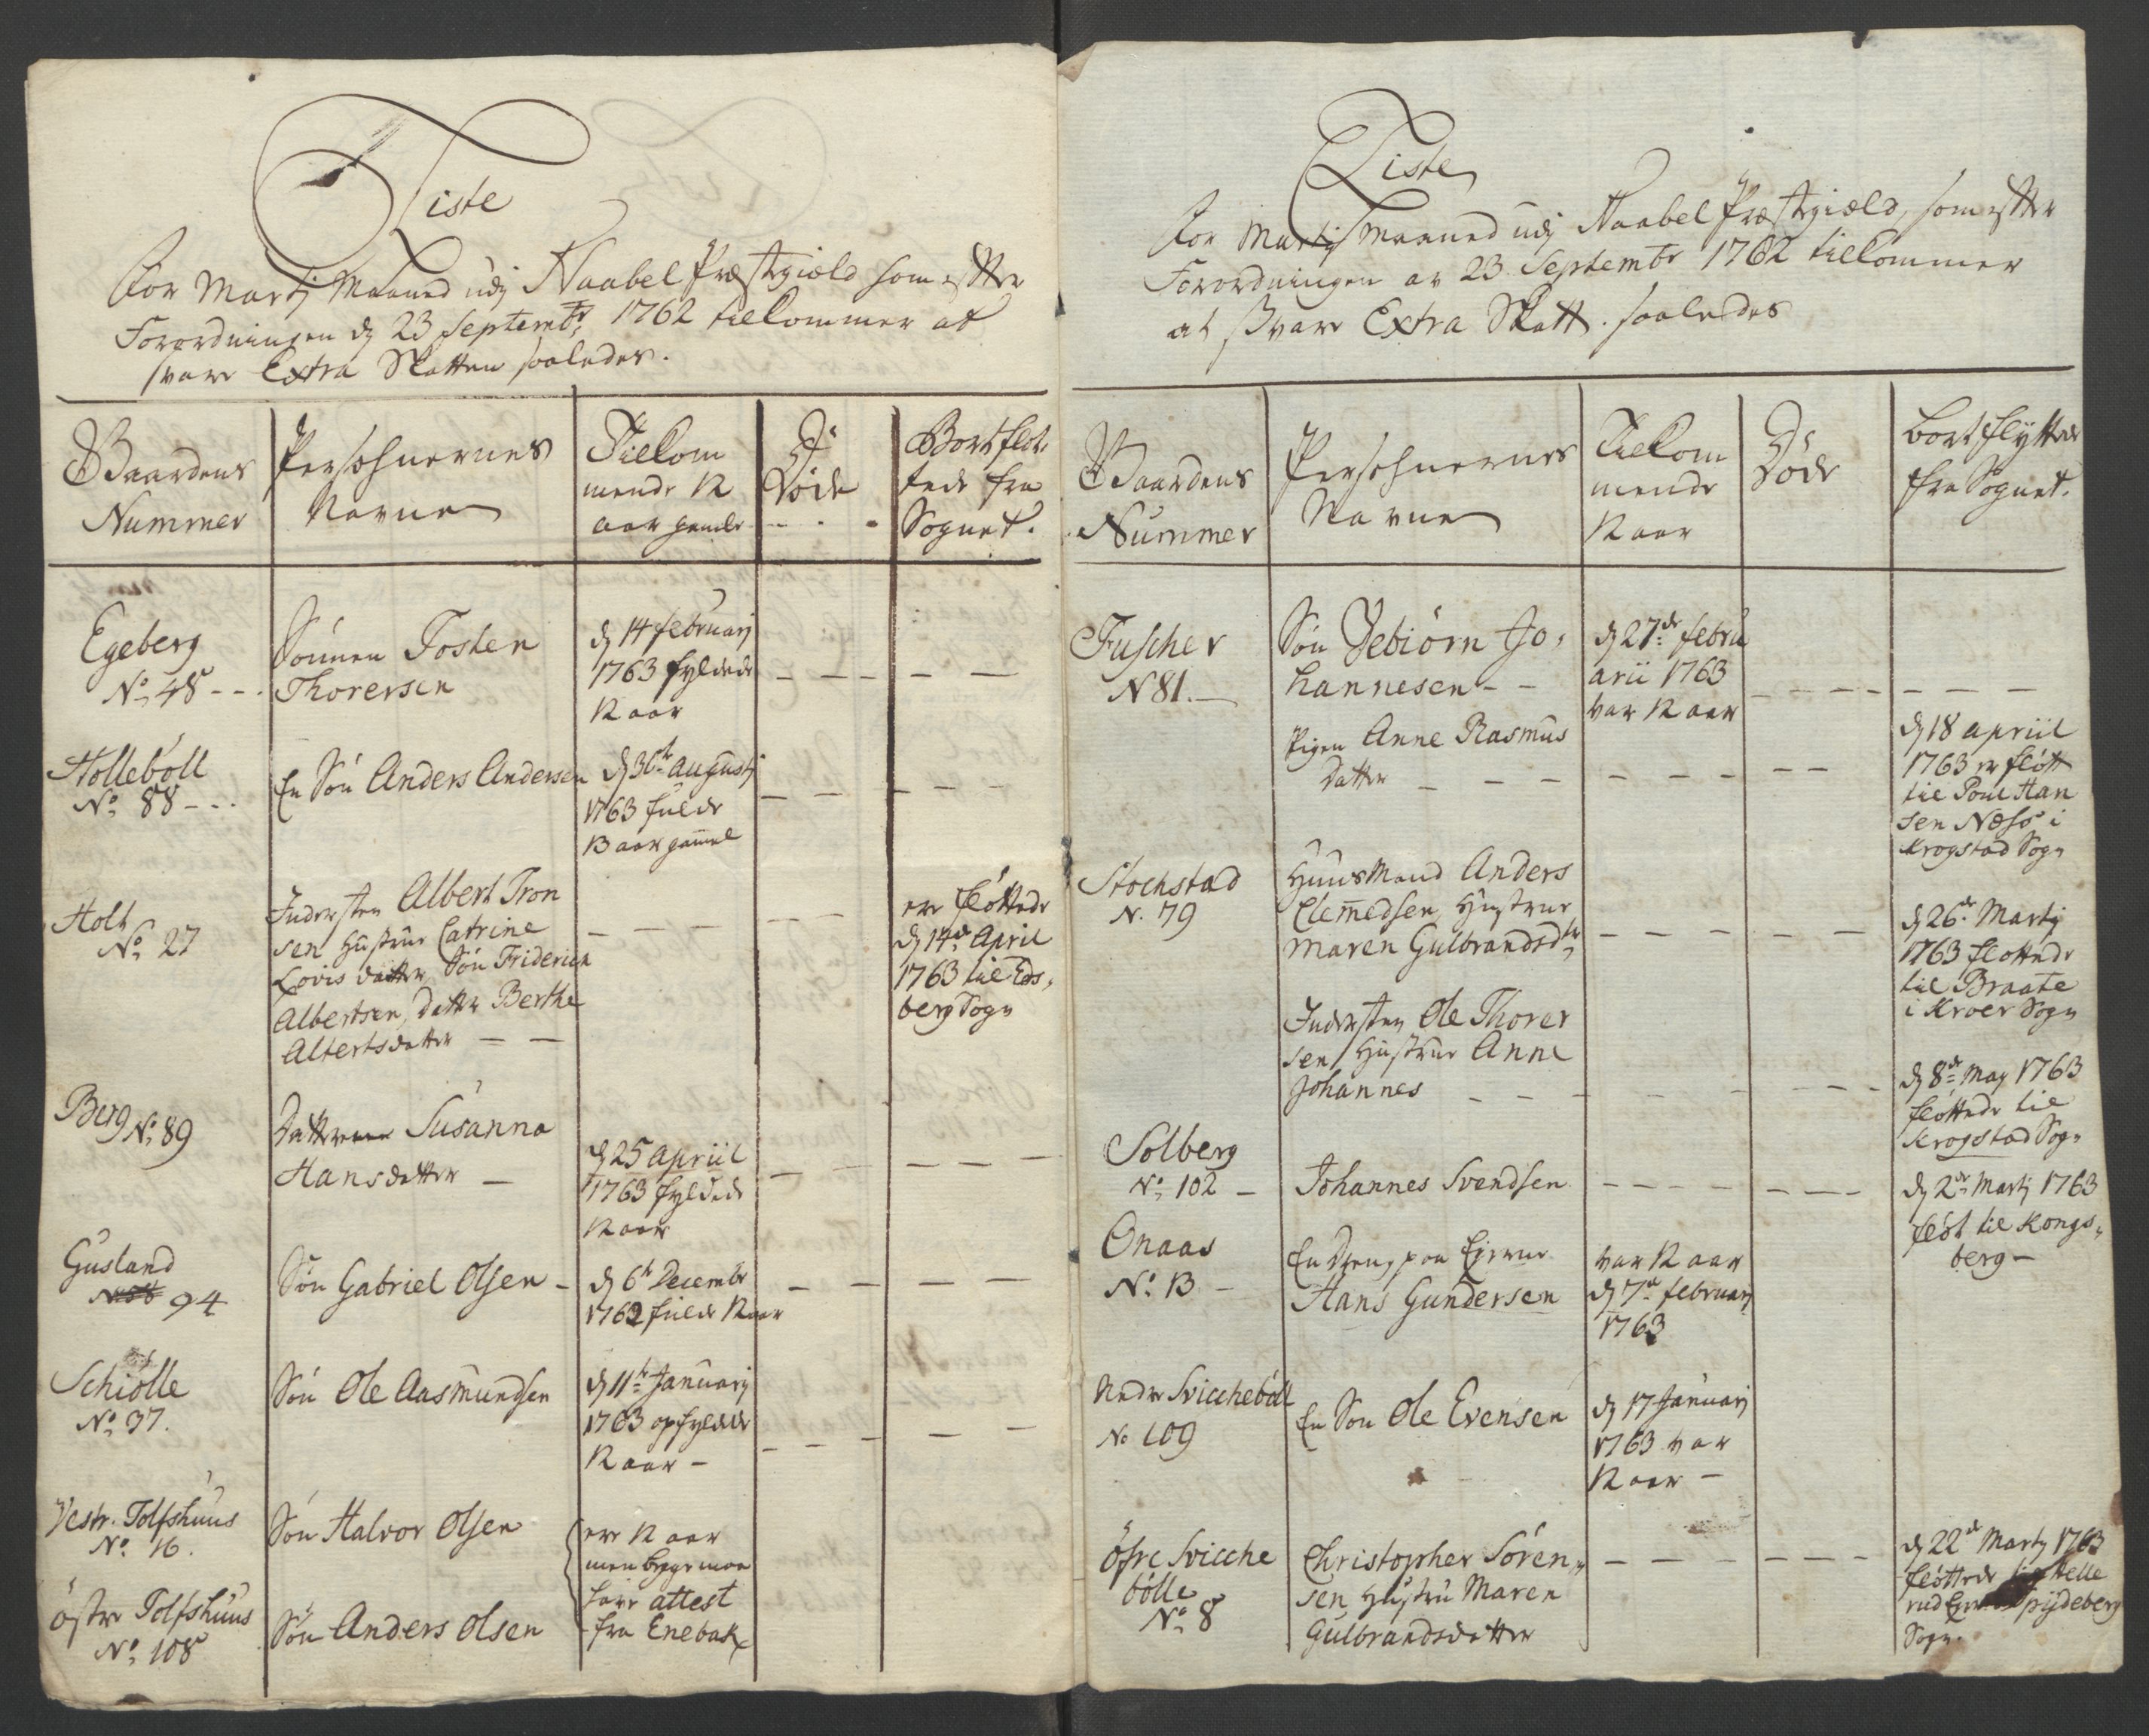 Liste
For Martj Maaned udj Haabel Præstegiæld som efter
Forordningen dj 23 Septembr 1762 tilkommer at
svare Extra Skatten saaledes.
Gaardens
Nummer
Persohnernes
Navne
Tilkom
mende 12
aar gamle
Døde
Bortfløt
tede fra
Sognet.
Egeberg
No 48
Sønnen Tosten
Thorersen
dj 14 februarj
1763 fyldede
12 aar
Hollebøll
No 88
En Søn Anders Andersen
dj 30t Augustj
1763 fulde
13 aar gamel
Holt
No 27
Indersten Albert Tron
sen Hustrue Catrine
Lovis datter, Søn Friderich
Albertsen, Datter Berthe
Albertsdatter
ere fløttede
dj 14de April
1763 til Eds,
berg Sogn
Berg No 89
Datteren Susanna
Hansdatter
dj 25 Apriil
1763 fyldede
12 aar
Gusland
94
Søn Gabriel Olsen
dj 6t Decembr
1762 fulde 12 aar
Schiølle
No 37.
Søn Ole Aasmundsen
dj 11t Januarj
1763 opfyldede
12 aar
Vestr. Tolfshuus
No 16.
Søn Halvor Olsen
ere 12 aar
men begge maa
have attest
fra Enebak
østre Tolfshuus
No 108
Søn Anders Olsen
Liste
For Martj Maaned udj Haabel Præstegiæld, som efter
Forordningen av 23 Septembr 1762 tilkommer
at svare Extra Skatt. saaledes
Gaardens
Nummer
Persohnernes
Navne
Tilkom
mende
12 aar
Døde
bortflyttede
fra Sognet.
Fuscher
N 81.
Søn Vebiørn Jo,
hannesen
dj 27de febru
arii 1763
var 12 aar
Pigen Anne Rasmus
datter
dj 18 apriil
1763 er fløtt
til Poul Han
sen Næss i
Krogstad Sogn
Stochstad
N. 79
Huusmand Anders
Clemedsen, Hustrue
Maren Gulbrandsdtr
dj 26de Martj
1763 fløttede
til Braate
i Kroer Sogn
Indersten Ole Thorer
sen, Hustrue Anne
Johannes
dj 8de May 1763
fløttede til
Krogstad Sogn
Solberg
No 102
Johannes Svendsen
dj 2de Martj 1763
fløt til Kongs,
berg
Onaas
No 13
En Dreng paa Eierne
Hans Gundersen
var 12 aar
dj 7de februarj
1763
Nedre Svicchebøll
No 109
En Søn Ole Evensen
dj 17 Januarj
1763 var
12 aar
øfre Svicche
bølle
No 8
Christopher Søren,
sen Hustru Maren
Gulbrandsdatter
dj 22de Martj 1763
fløttede til Helle
rud Spydeberg
Sogn.